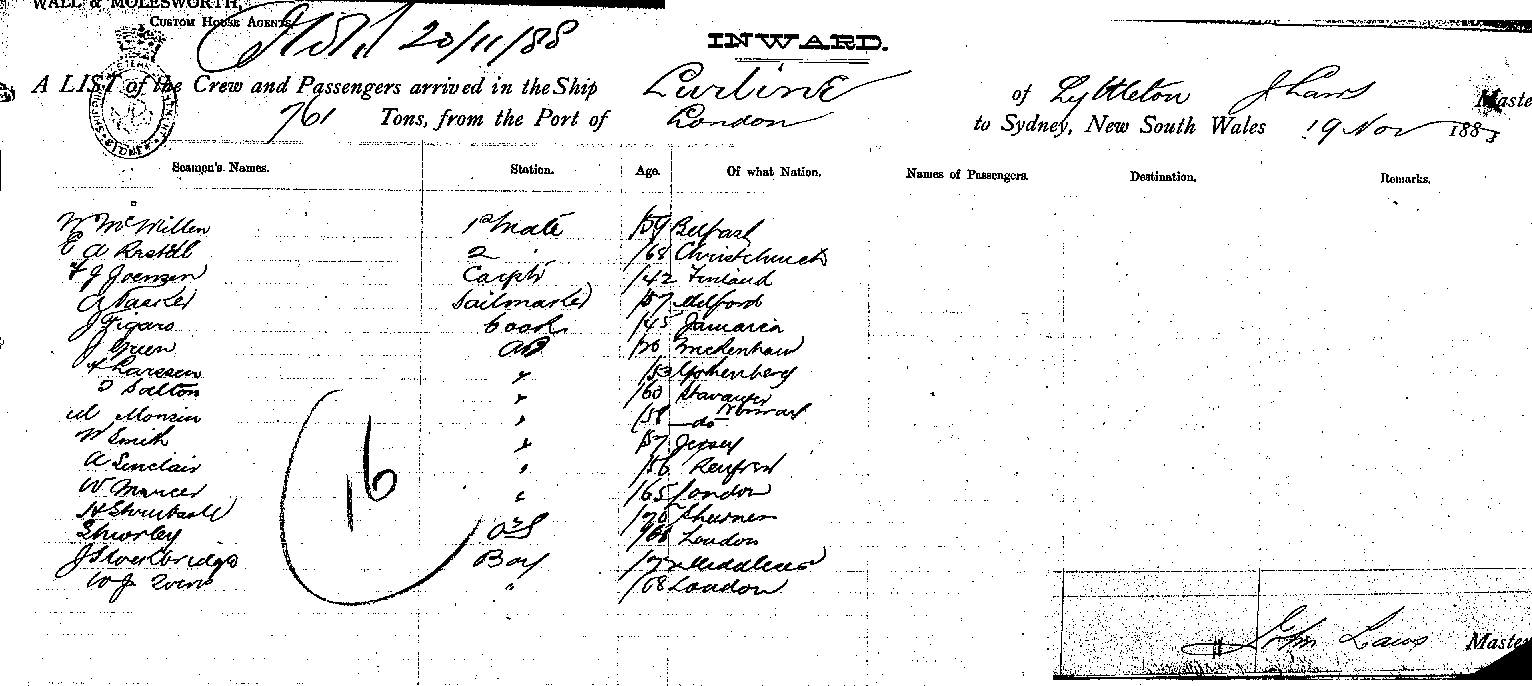 WALL & MOLESWORTH,
CUSTOM HOUSE AGENTS
20/11/88
INWARD.
A LIST of the Crew and Passengers arrived in the Ship Lurline of Lyttleton J Laws Master
761 Tons, from the Port of London to Sydney, New South Wales 19 Nov 188
Seamen's Names. Station. Age. Of what Nation. Names of Passengers. Destination. Remarks.
W McMillen 1st Mate /59 Belfast
E A 2 /68 Christchurch
F J Joensen Carptr /42 Finland
Sailmaker /57 Milford
J Figaro Cook /45 Jamaica
J Green AB
Larssen " /53 Gothenberg
Dalton " /60 Stavanger
M Monsen " /58 do Norway
W Smith " /57 Jersey
A Sinclair " /56 Renfrew
W Mercer " /65 London
H
OS /68 London
J Stockbridge Boy /72 Middlesex
W J " /68 London
16
John Laws Master